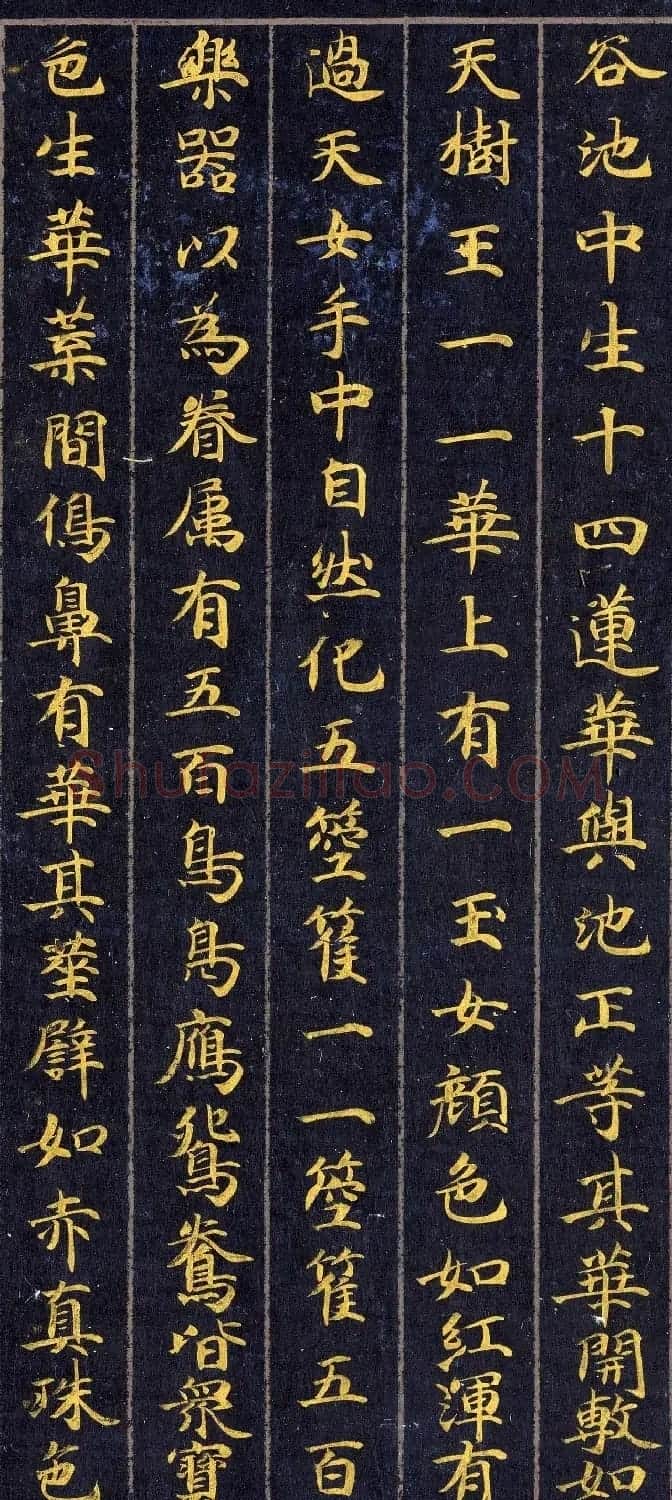 谷池中生十四蓮華與池正等其華開敷如
天樹王一一華上有一玉女顏色如紅渾有
過天女手中自然化五箜篌一一箜篌五百
樂器以為眷属有五百鳥鳥鴈鴛鴦皆眾寶
色生華葉間鳥鼻有華其莖譬如赤真珠色
Shufaziliao.COM